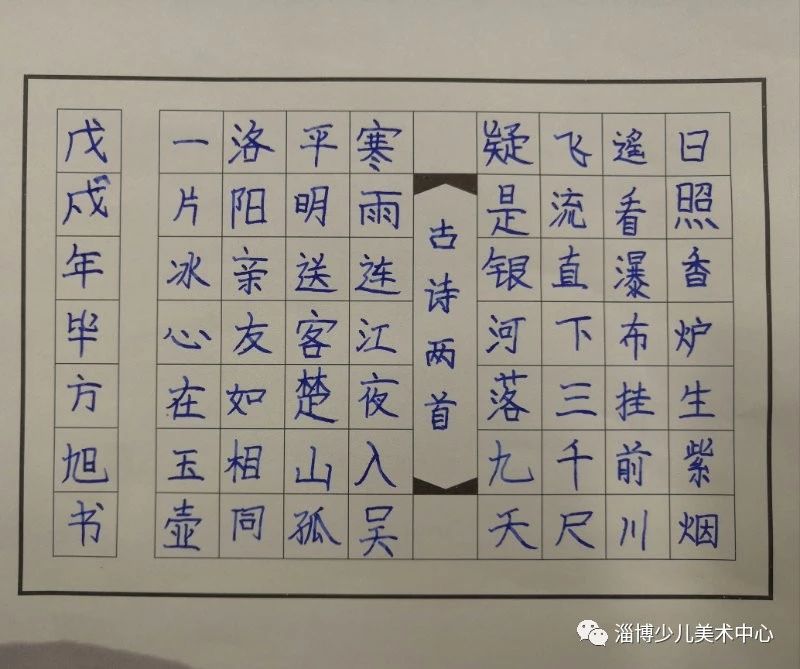 日照香炉生紫烟
遥看瀑布挂前川
飞流直下三千尺
疑是银河落九天
古诗两首
寒雨连江夜入吴
平明送客楚山孤
洛阳亲友如相同
一片冰心在玉壶
戊戌年毕方旭书
淄博少儿美术中心